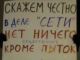 СКАЖЕМ ЧЕСТНО
В ДЕЛЕ "СЕТИ"
НЕТ НИЧЕГО
КРОМЕ ПЫТОК